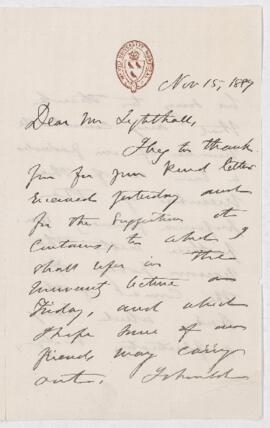 Nov 15, 1889
Dear Mr Lighthall,
I beg to thank
you for your kind letter
received yesterday and
for the suggestion it
contains, to which I
shall refer in the
lecture on
Friday, and which
I hope some of our
friends may carry
out. I should